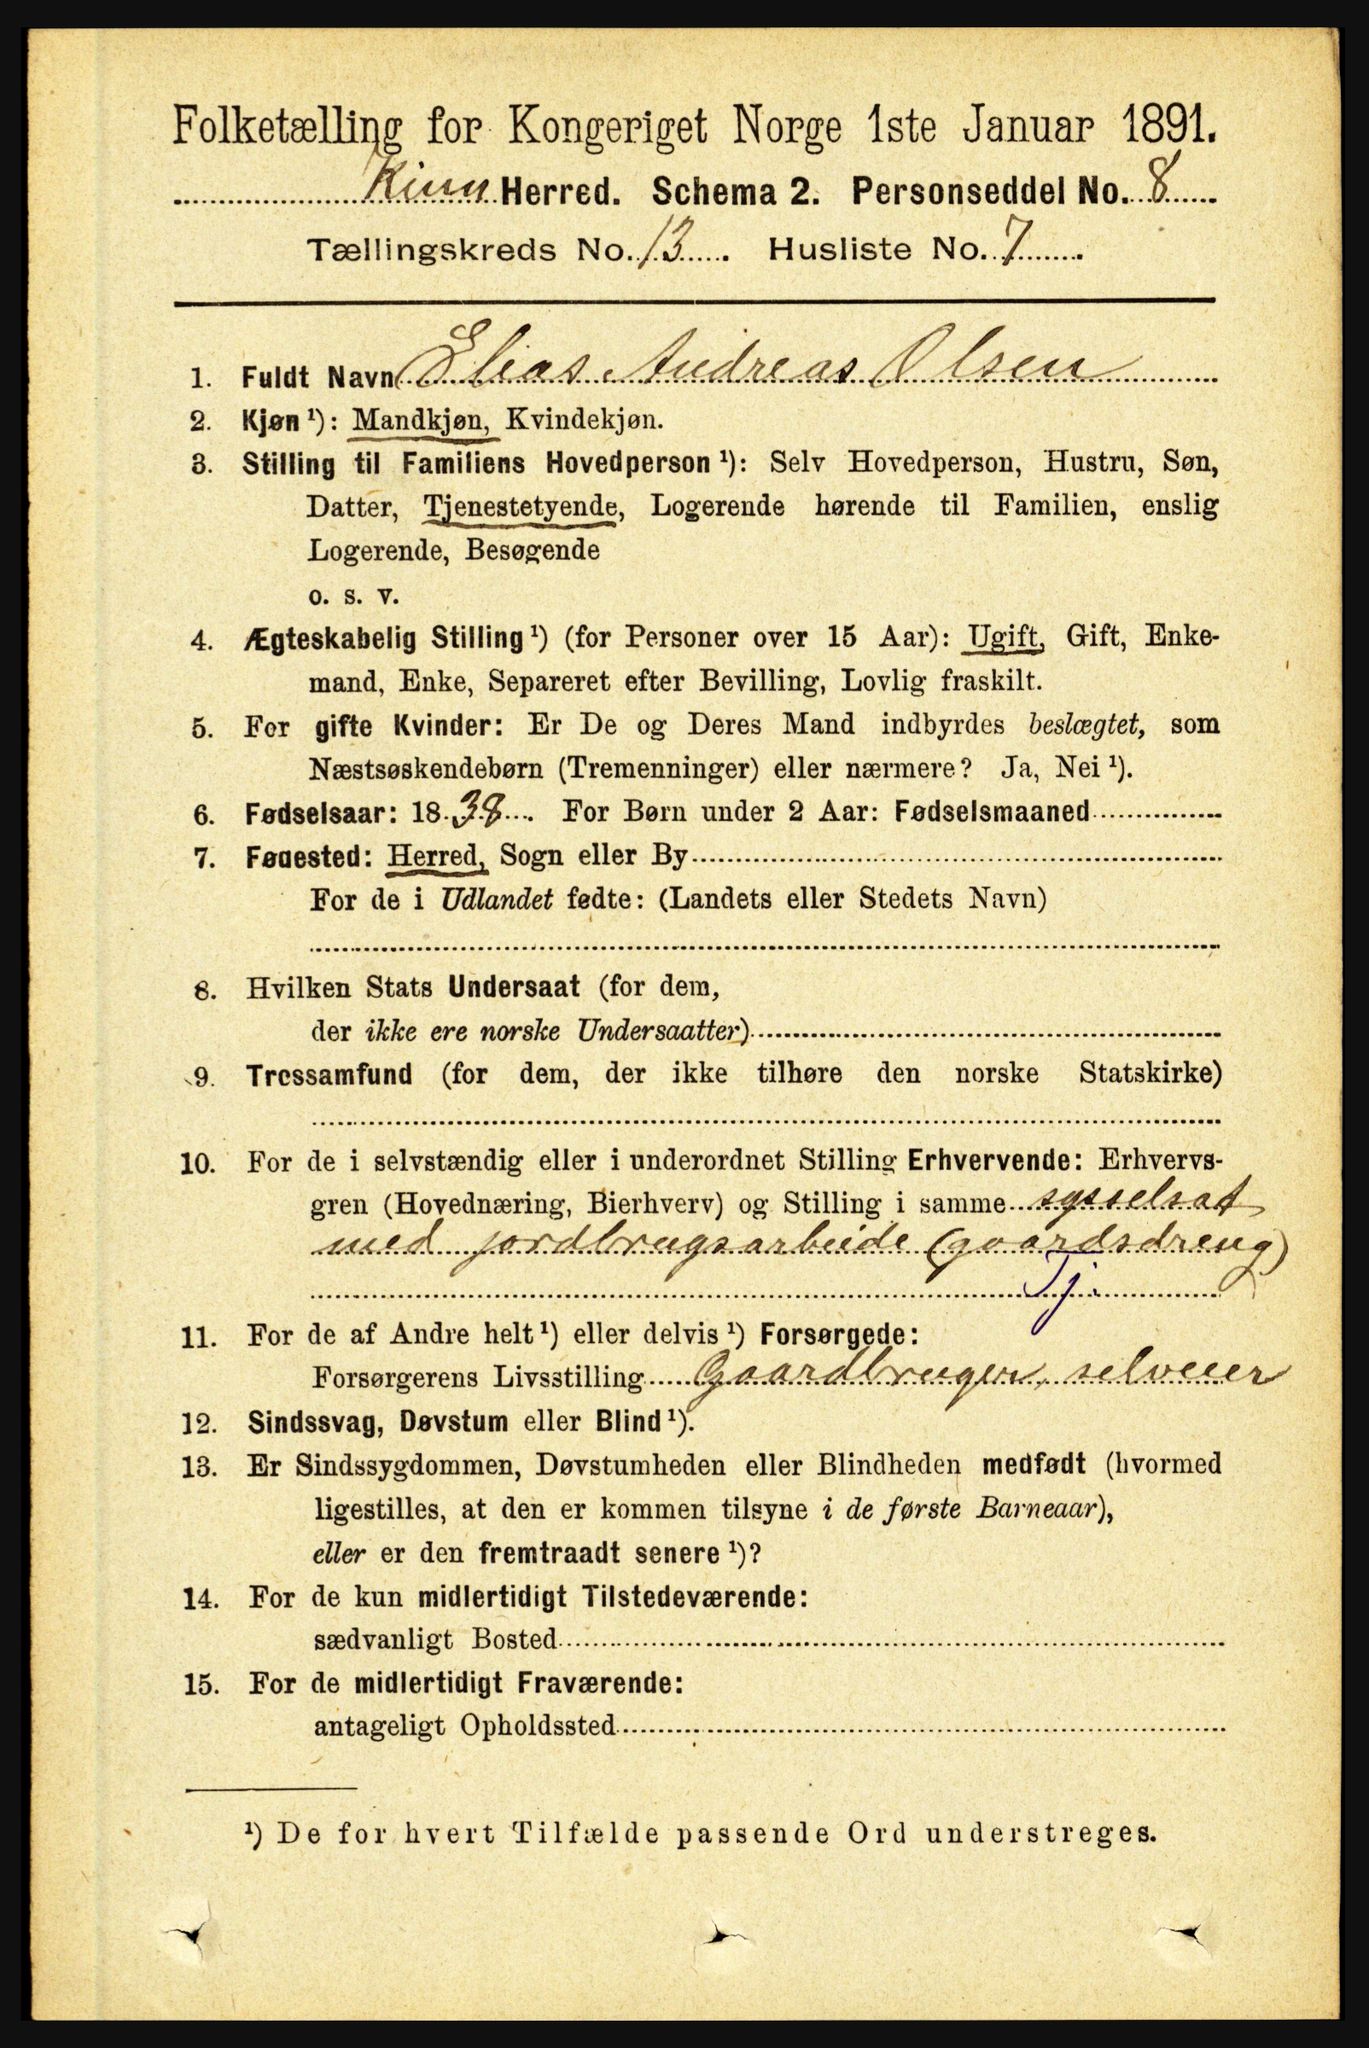 Folketælling for Kongeriget Norge 1ste Januar 1891.
Kinn Herred. Schema 2. Personseddel No. 8
Tællingskreds No. 13. Husliste No. 7
1. Fuldt Navn Elias Andreas Olsen
2. Kjøn¹): Mandkjøn, Kvindekjøn.
3. Stilling til Familiens Hovedperson¹): Selv Hovedperson, Hustru, Søn,
Datter, Tjenestetyende, Logerende hørende til Familien, enslig
Logerende, Besøgende
o. s. v.
4. Ægteskabelig Stilling¹) (for Personer over 15 Aar): Ugift, Gift, Enke-
mand, Enke, Separeret efter Bevilling, Lovlig fraskilt.
5. For gifte Kvinder: Er De og Deres Mand indbyrdes beslægtet, som
Næstsøskendebørn (Tremenninger) eller nærmere? Ja, Nei¹).
6. Fødselsaar: 1838. For Børn under 2 Aar: Fødselsmaaned
7. Fødested: Herred, Sogn eller By
For de i Udlandet fødte: (Landets eller Stedets Navn)
8. Hvilken Stats Undersaat (for dem,
der ikke ere norske Undersaatter)
9. Trossamfund (for dem, der ikke tilhøre den norske Statskirke)
10. For de i selvstændig eller i underordnet Stilling Erhvervende: Erhvervs-
gren (Hovednæring, Bierhverv) og Stilling i samme sysselsat
med jordbrugsarbeide (gaardsdreng)
Tj.
11. For de af Andre helt¹) eller delvis¹) Forsørgede:
Forsørgerens Livsstilling Gaardbruger, selveier
12. Sindssvag, Døvstum eller Blind¹).
13. Er Sindssygdommen, Døvstumheden eller Blindheden medfødt (hvormed
ligestilles, at den er kommen tilsyne i de første Barneaar),
eller er den fremtraadt senere¹)?
14. For de kun midlertidigt Tilstedeværende:
sædvanligt Bosted
15. For de midlertidigt Fraværende:
antageligt Opholdssted
¹) De for hvert Tilfælde passende Ord understreges.